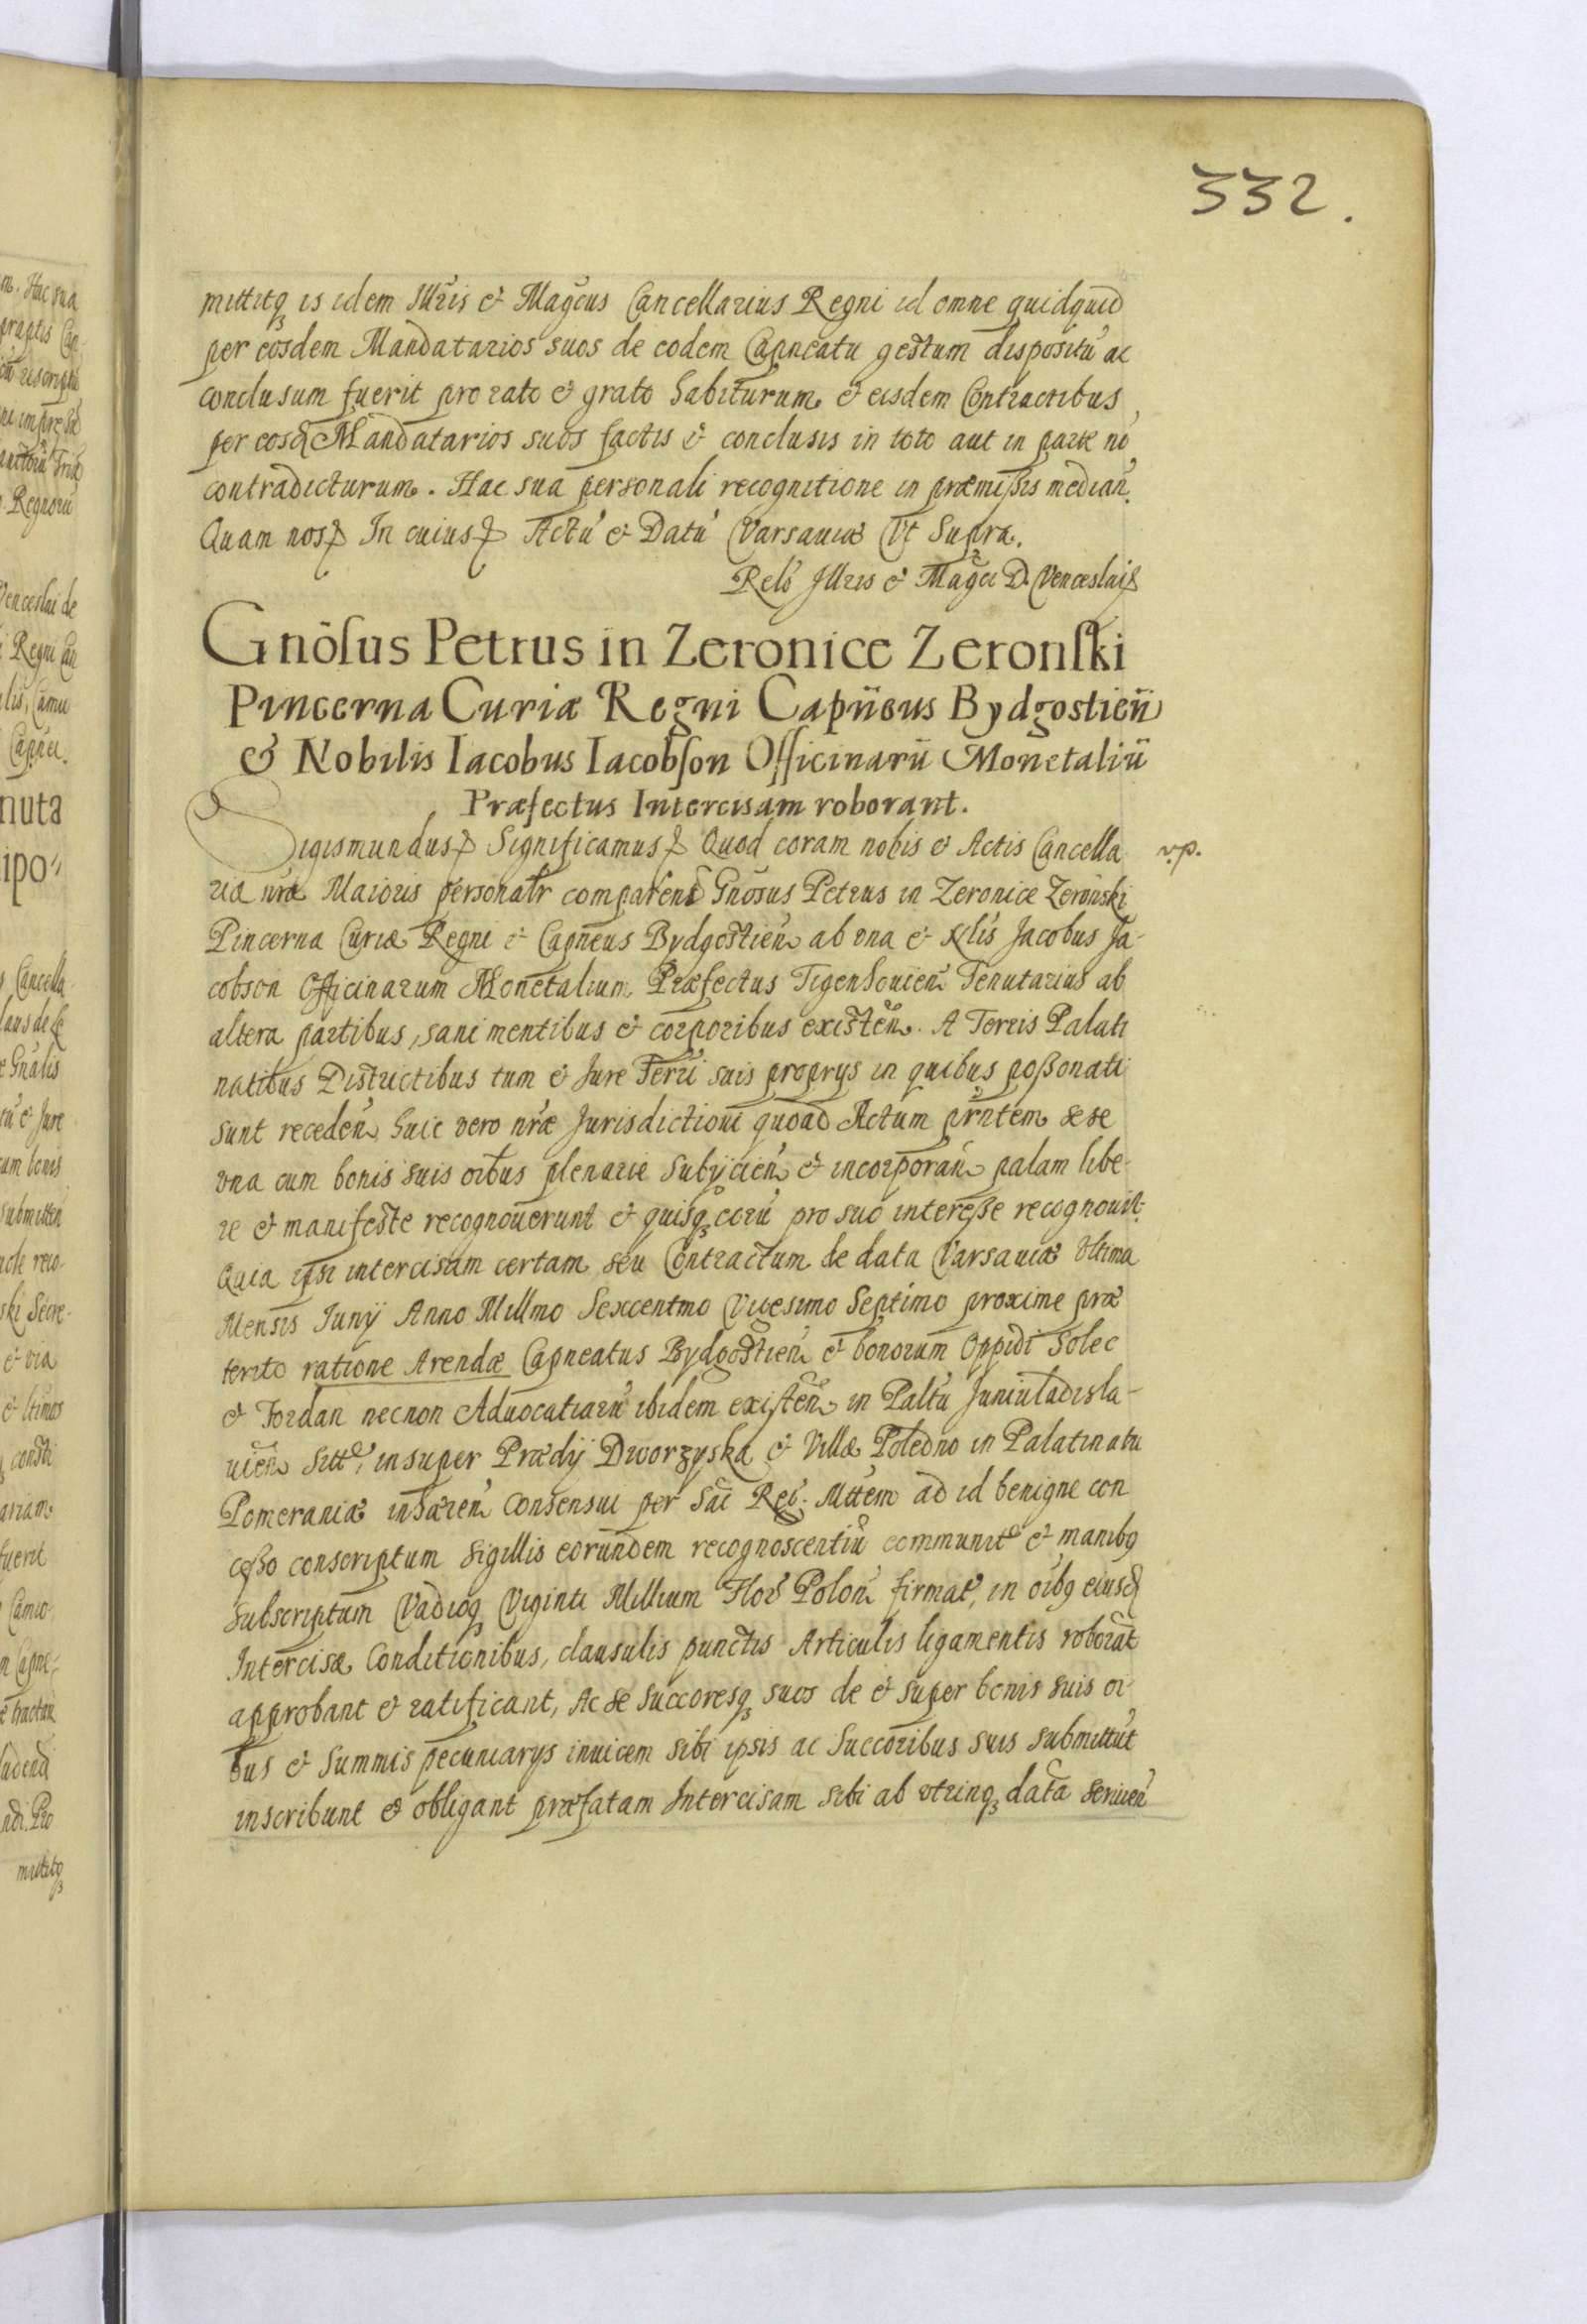 332.
mittitq₃ is idem Illris & Magcus Cancellarius Regni id omne quidquid
per eosdem Mandatarios suos de eodem Capneatu gestum dispositũ ac
conclusum fuerit pro rato & grato habiturum & eisdem Contractibus
per eosd Mandatarios suos factis & conclusis in toto aut in parte nõ
contradicturum. Hac sua personali recognitione in præmißis median.
Quam nos In cuius Actũ & Datũ Varsauiæ Vt Supra.
Relõ Illris & Magci D. Venceslai
Gnõsus Petrus in Zeronice Zeronski
Pincerna Curiæ Regni Capñeus Bydgostieñ
& Nobilis Iacobus Iacobson Officinarũ Monetaliũ
Præfectus Intercisam roborant.
Sigismundus Significamus Quod coram nobis & Actis Cancella
v.p.
riæ nræ Maioris personalr comparens Gnõsus Petrus in Zeronice Zeronski
Pincerna Curiæ Regni & Capneus Bydgostieñ ab vna & Nlis Jacobus Ja-
cobson Officinarum Monetalium Præfectus Tigenhouieñ Tenutarius ab
altera partibus, sani mentibus & corporibus existeñ. A Terris Palati
natibus Districtibus tum & Jure Terri suis proprys in quibus poßonati
sunt recedeñ, huic vero nræ Jurisdictioni quoad Actum prntem sese
vna cum bonis suis oibus plenarie subijcieñ & incorporañ palam libe-
re & manifeste recognouerunt & quisq₃ eorũ pro suo intereße recognouit.
Quia ipsi intercisam certam seu Contractum de data Varsauiæ Vltima
Mensis Junij Anno Millmo Sexcentmo Vigesimo Septimo proxime præ
terito ratione Arendæ Capneatus Bydgostieñ & bonorum Oppidi Solec
& Fordan necnon Aduocatiarũ ibidem existeñ in Paltũ Juniuladisla-
uieñ sitt, insuper Prædij Dworzyska & Villæ Poledno in Palatinatu
Pomeraniæ inhæreñ consensui per Sac Reg. Mttem ad id benigne con
ceßo conscriptum sigillis eorundem recognoscentiũ communit & manibq
subscriptum Vadioq₃ Viginti Millium Flor Poloñ firmat, in oibq eiusd
Intercisæ Conditionibus, clausulis punctis Articulis ligamentis roborãt
approbant & ratificant, Ac se succoresq₃ suos de & super bonis suis oi
bus & summis pecuniarys inuicem sibi ipsis ac succoribus suis submittũt
inscribunt & obligant præfatam Intercisam sibi ab vtrinq₃ datã seruieñ